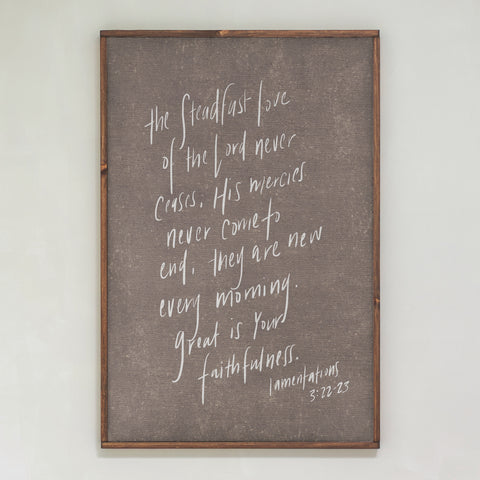 the steadfast love
of the Lord never
ceases. His mercies
never come to
end. they are new
every morning.
great is Your
faithfulness.
lamentations
3:22-23